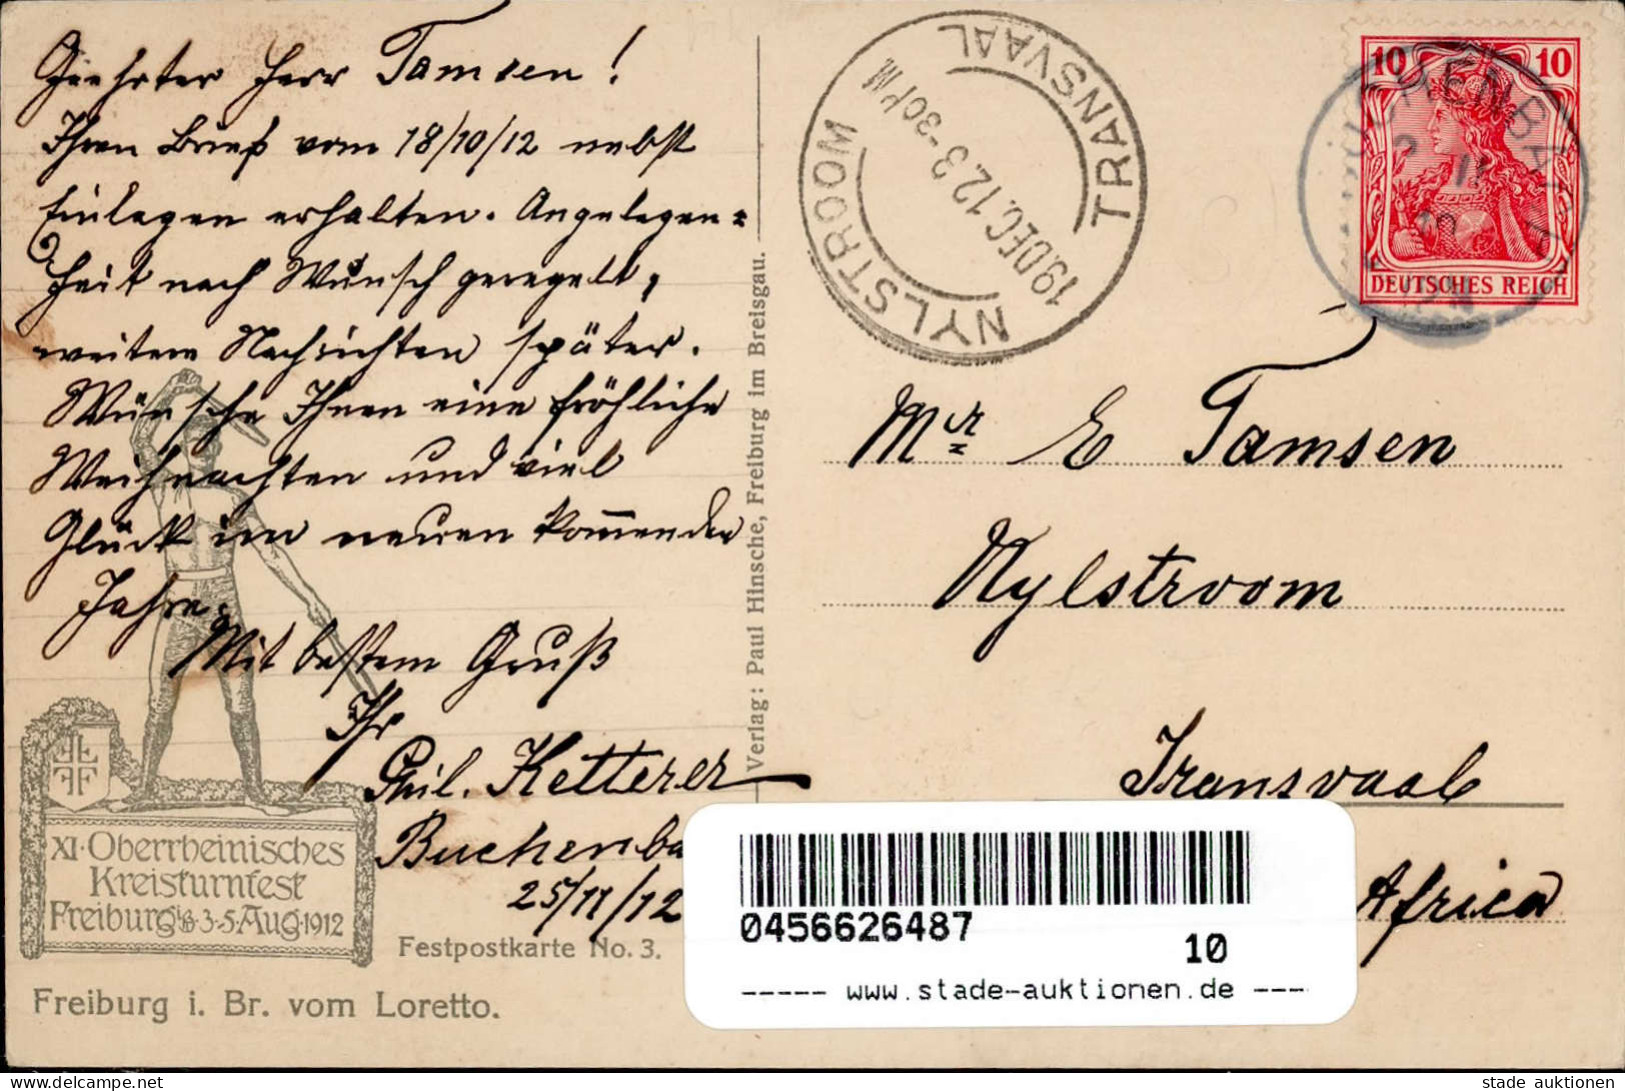 Geehrter Herr Tamsen!
Ihren Brief vom 18/10/12 nebst
Einlagen erhalten. Angelegen=
heit nach Wunsch geregelt,
weitere Nachrichten später.
Wünsche Ihnen eine fröhliche
Weihnachten und viel
Glück im neuen kommenden
Jahre.
Mit bestem Gruß
Ihr
Phil. Ketterer
Buchenba
25/11/12
XI. Oberrheinisches
Kreisturnfest
Freiburg i/B. 3-5 Aug. 1912
Festpostkarte No. 3.
Freiburg i. Br. vom Loretto.
Verlag: Paul Hinsche, Freiburg im Breisgau.
NYLSTROOM TRANSVAAL
19.DEC.12.3-30PM
10 10
DEUTSCHES REICH
Mr E Tamsen
Nylstroom
Transvaal
Africa
0456626487
10
----- www.stade-auktionen.de ---
stade auktionen